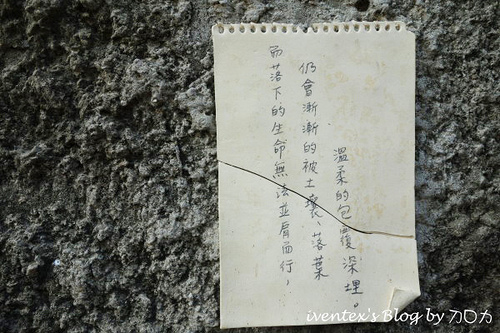 而落下的生命無法並肩而行，
仍會漸漸的被土壤、落葉
溫柔的包覆深埋。
iventex's Blog by 加口力